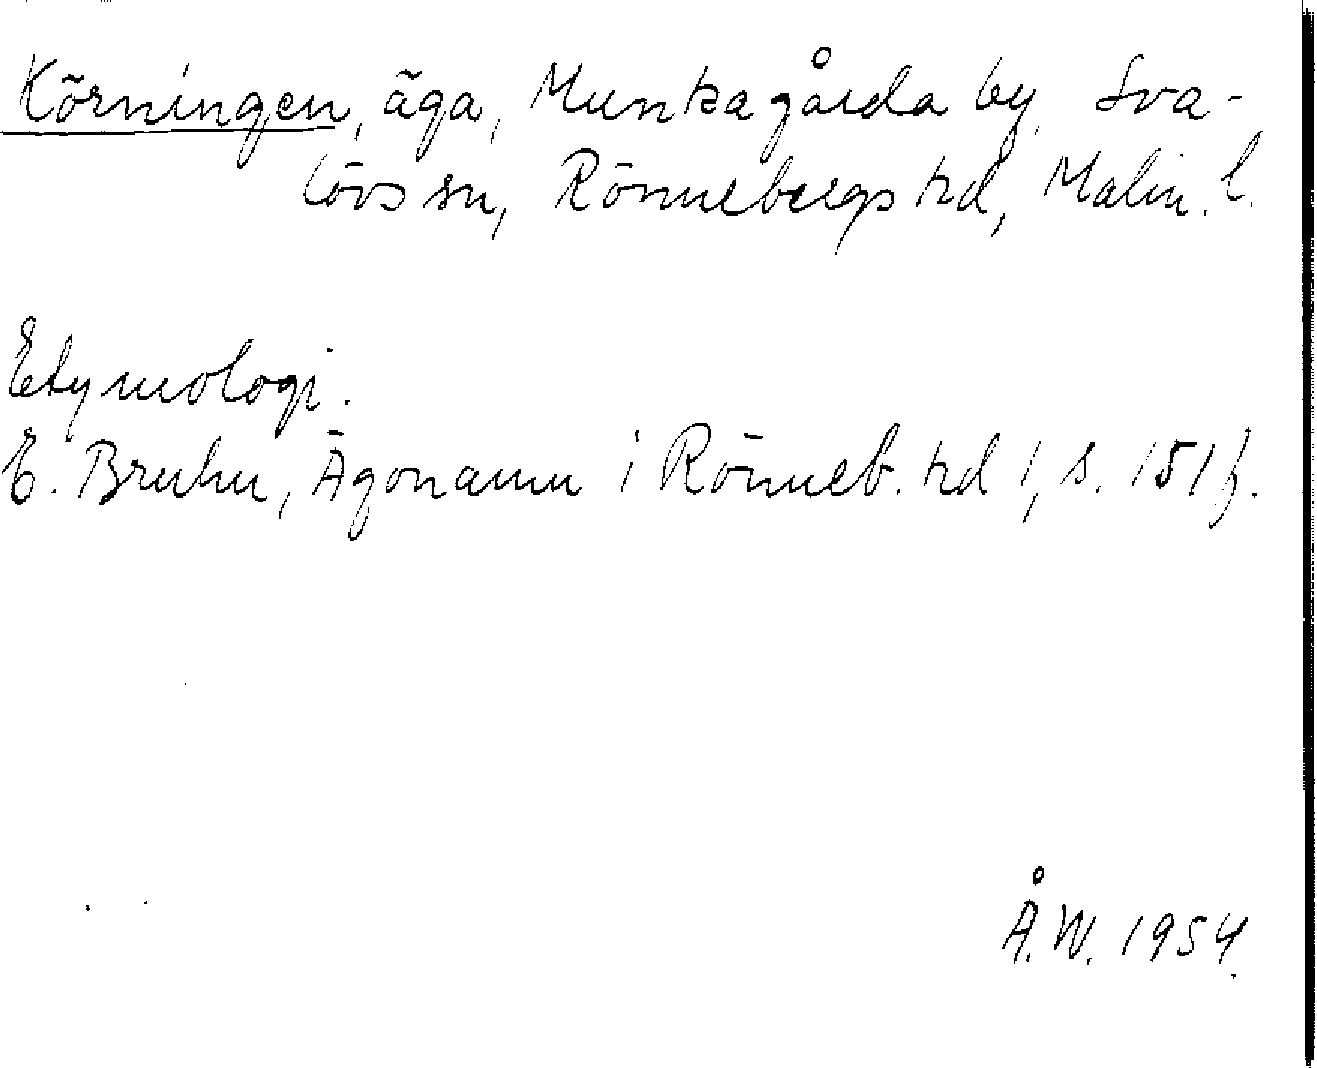 Körningen, äga, Munkagårda by, Sva-
lövs sn, Rönnebergs hd, Malm. l.
Etymologi.
E. Bruhn, Ägonamn i Rönneb. hd 1, s. 151 f.
Å.W. 1954.